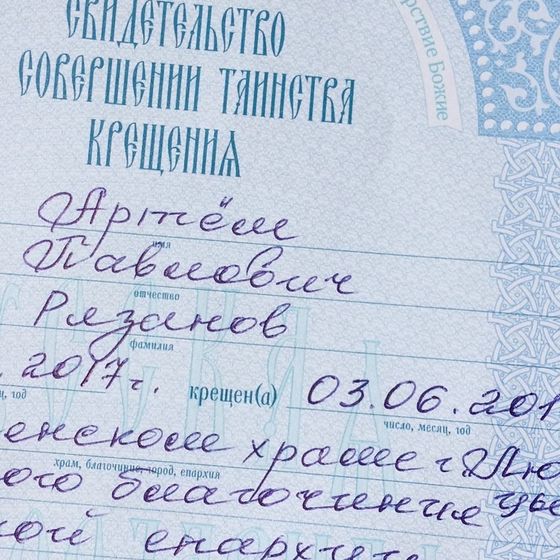 СВИДЕТЕЛЬСТВО
СОВЕРШЕНИИ ТАИНСТВА
КРЕЩЕНИЯ
рствие Божие
Артём
имя
Павлович
отчество
Рязанов
фамилия
. 2017 г. крещен(а) 03.06.201
ц, год число, месяц, год
енском храме г. Лю
храм, благочиние, город, епархия
ого благочиния
кой епархии